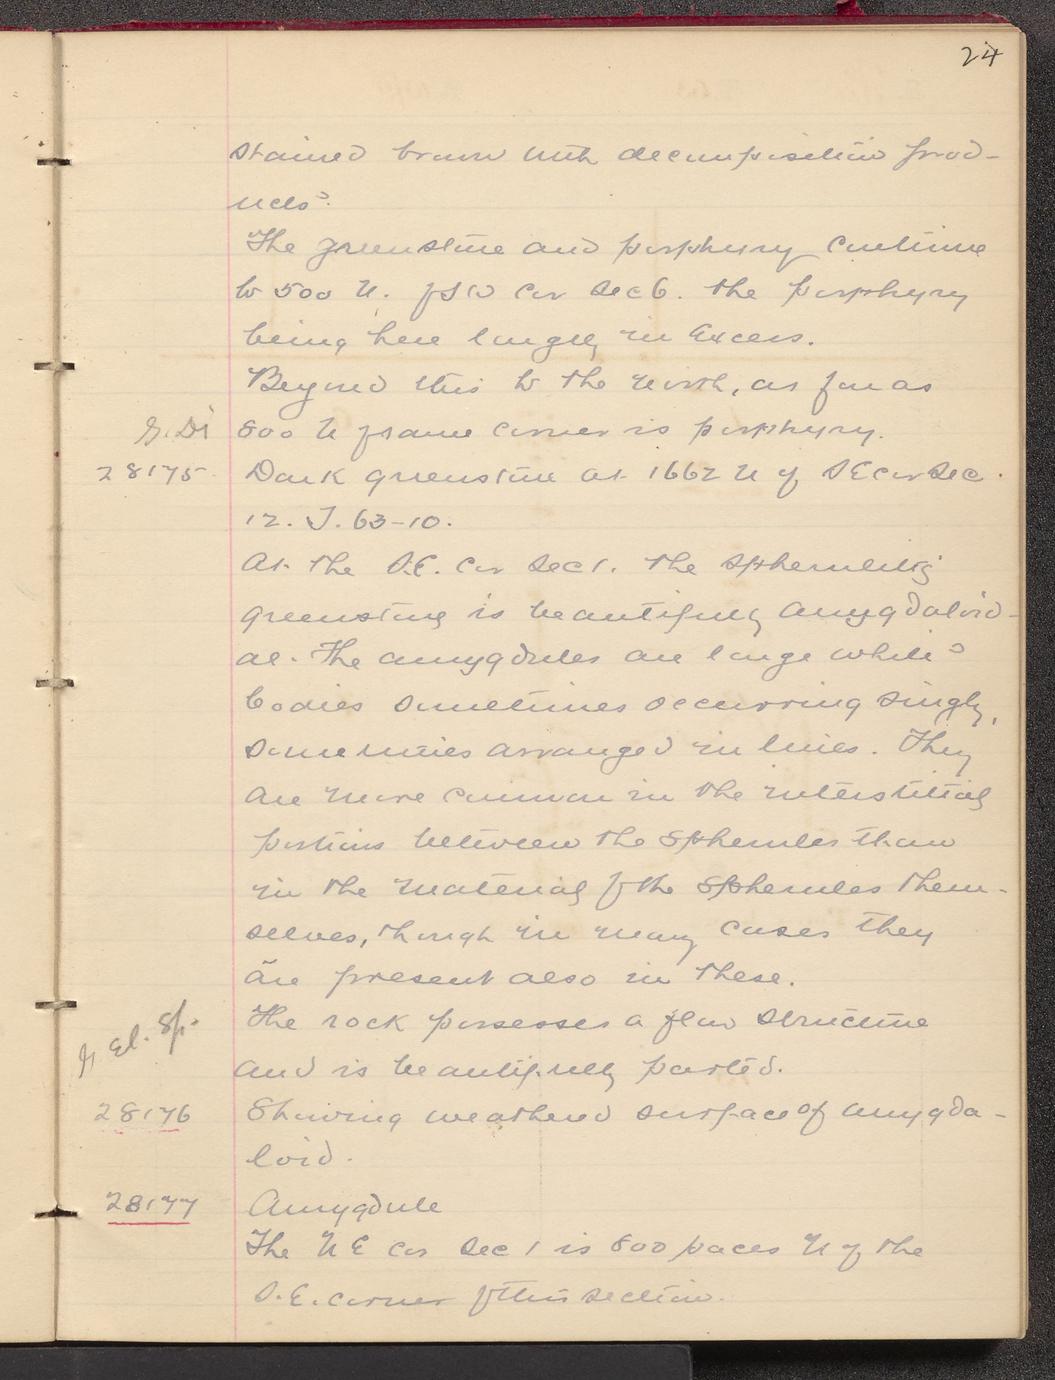 24
stained brown with decomposition prod-
ucts.
The greenstone and porphyry continue
to 500 N. of SW Cor Sec 6. the porphyry
being here largely in excess.
Beyond this to the north, as far as
G. Di 800 N of same corner is porphyry.
28175 Dark greenstone at 1662 N of SE cor Sec.
12. T. 63-10.
At the S.E. Cor Sec 1. the spherulitic
greenstone is beautifully amygdaloid-
al. The amygdules are large white
bodies sometimes occurring singly,
sometimes arranged in lines. They
are more common in the interstitial
portions between the spherules than
in the material of the spherules them-
selves, though in many cases they
are present also in these.
The rock possesses a flow structure
G. El. Sp.
and is beautifully parted.
28176 Showing weathered surface of amygda-
loid.
28177 Amygdule
The N E cor Sec 1 is 800 paces N of the
S.E. corner of this section.